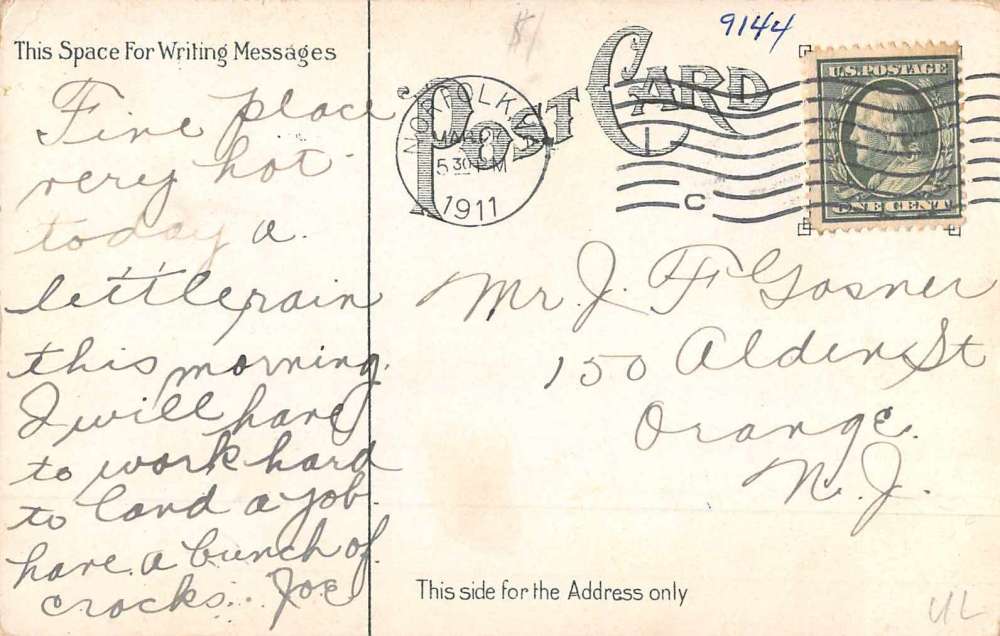 This Space For Writing Messages
Fine place
very hot
today a
little rain
this morning.
I will have
to work hard
to land a job.
have a bunch of
crocks. Joe
$1
9144
POST CARD
NORFOLK, VA.
5 30 PM
1911
C
U.S. POSTAGE
ONE CENT
Mr. J. F Gosner
150 Alden St
Orange.
N.J.
This side for the Address only
UL